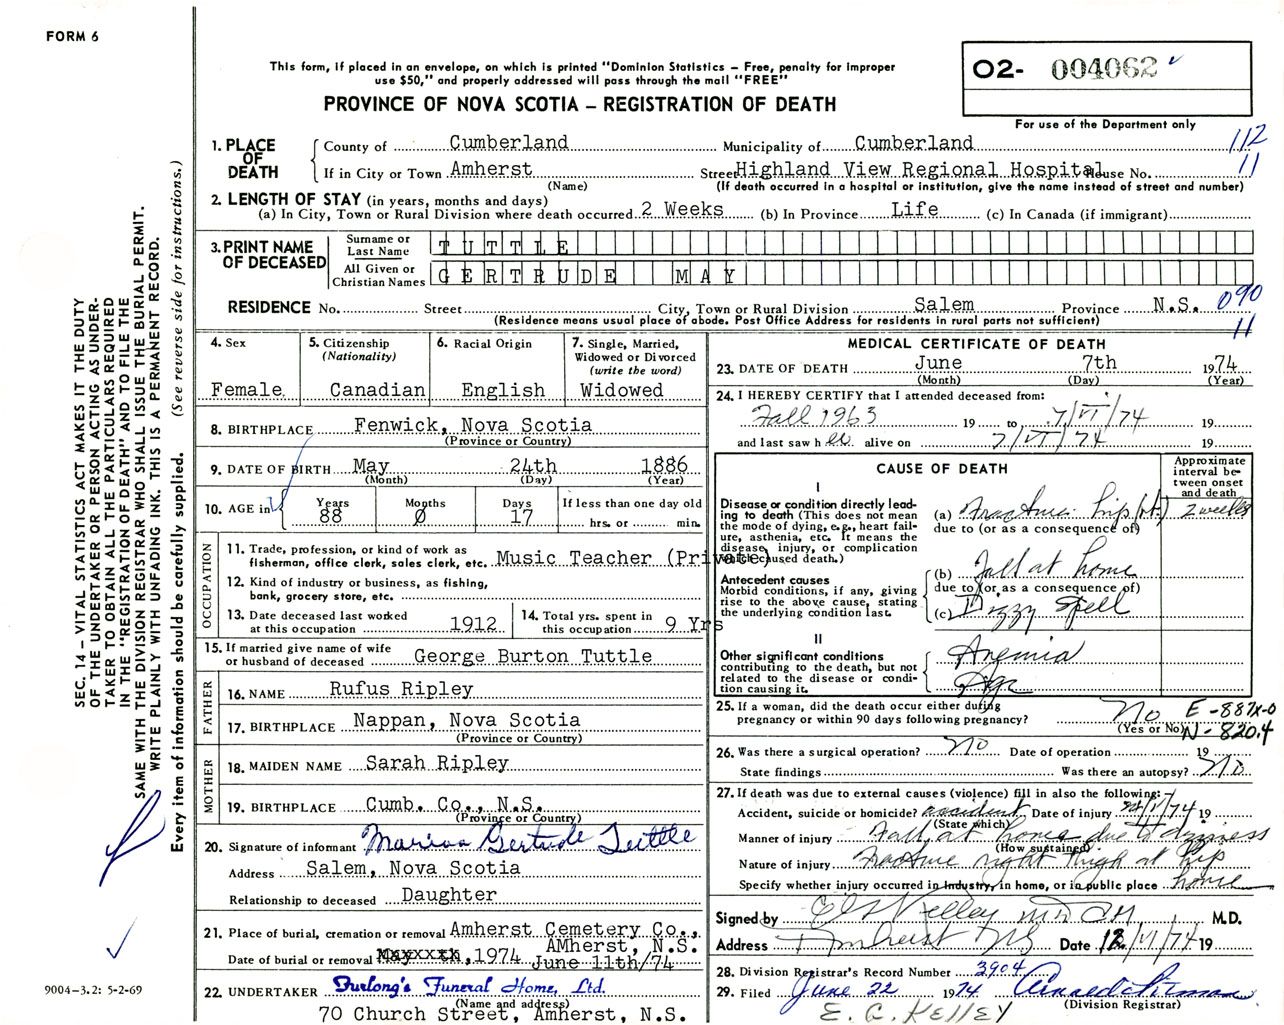 FORM 6
This form, if placed in an envelope, on which is printed "Dominion Statistics – Free, penalty for improper
use $50," and properly addressed will pass through the mail "FREE"
PROVINCE OF NOVA SCOTIA – REGISTRATION OF DEATH
02- 004062
For use of the Department only
112
11
1. PLACE OF DEATH
County of Cumberland Municipality of Cumberland
If in City or Town Amherst Street Highland View Regional Hospital House No.
(Name) (If death occurred in a hospital or institution, give the name instead of street and number)
2. LENGTH OF STAY (in years, months and days)
(a) In City, Town or Rural Division where death occurred 2 Weeks (b) In Province Life (c) In Canada (if immigrant)
3. PRINT NAME OF DECEASED
Surname or Last Name TUTTLE
All Given or Christian Names GERTRUDE MAY
RESIDENCE No. Street City, Town or Rural Division Salem Province N.S. 090
(Residence means usual place of abode. Post Office Address for residents in rural parts not sufficient) 11
4. Sex Female
5. Citizenship (Nationality) Canadian
6. Racial Origin English
7. Single, Married, Widowed or Divorced (write the word) Widowed
8. BIRTHPLACE Fenwick, Nova Scotia
(Province or Country)
9. DATE OF BIRTH May 24th 1886
(Month) (Day) (Year)
10. AGE in Years 88 Months 0 Days 17 If less than one day old hrs. or min.
OCCUPATION
11. Trade, profession, or kind of work as fisherman, office clerk, sales clerk, etc. Music Teacher (Private)
12. Kind of industry or business, as fishing, bank, grocery store, etc.
13. Date deceased last worked at this occupation 1912
14. Total yrs. spent in this occupation 9 Yrs
15. If married give name of wife or husband of deceased George Burton Tuttle
FATHER
16. NAME Rufus Ripley
17. BIRTHPLACE Nappan, Nova Scotia
(Province or Country)
MOTHER
18. MAIDEN NAME Sarah Ripley
19. BIRTHPLACE Cumb. Co., N.S.
(Province or Country)
20. Signature of informant Marion Gertrude Tuttle
Address Salem, Nova Scotia
Relationship to deceased Daughter
21. Place of burial, cremation or removal Amherst Cemetery Co.,
AMherst, N.S.
Date of burial or removal , 1974 June 11th/74
22. UNDERTAKER Furlong's Funeral Home, Ltd.
(Name and address)
70 Church Street, Amherst, N.S.
MEDICAL CERTIFICATE OF DEATH
23. DATE OF DEATH June 7th 1974
(Month) (Day) (Year)
24. I HEREBY CERTIFY that I attended deceased from:
Fall 1963 19 to 7/VI/74 19
and last saw h er alive on 7/VI/74 19
CAUSE OF DEATH
Approximate interval between onset and death
I
Disease or condition directly leading to death (This does not mean the mode of dying, e.g., heart failure, asthenia, etc. It means the disease, injury, or complication which caused death.)
(a) Fracture hip (rt.) 2 weeks
due to (or as a consequence of)
Antecedent causes
Morbid conditions, if any, giving rise to the above cause, stating the underlying condition last.
(b) Fall at home
due to (or as a consequence of)
(c) Dizzy spell
II
Other significant conditions contributing to the death, but not related to the disease or condition causing it.
Anemia
Age
25. If a woman, did the death occur either during pregnancy or within 90 days following pregnancy? No
(Yes or No)
E-887X-0
N-820.4
26. Was there a surgical operation? No Date of operation 19
State findings Was there an autopsy? No
27. If death was due to external causes (violence) fill in also the following:
Accident, suicide or homicide? accident Date of injury /74 19
(State which)
Manner of injury Fall at home due to dizziness
(How sustained)
Nature of injury Fracture right thigh at hip
Specify whether injury occurred in industry, in home, or in public place home
Signed by M.D.
Address Amherst NS Date 12/VI/74 19
28. Division Registrar's Record Number 3904
29. Filed June 22 1974
(Division Registrar)
E. G. KELLEY
SEC. 14 – VITAL STATISTICS ACT MAKES IT THE DUTY
OF THE UNDERTAKER OR PERSON ACTING AS UNDER-
TAKER TO OBTAIN ALL THE PARTICULARS REQUIRED
IN THE "REGISTRATION OF DEATH" AND TO FILE THE
SAME WITH THE DIVISION REGISTRAR WHO SHALL ISSUE THE BURIAL PERMIT.
WRITE PLAINLY WITH UNFADING INK. THIS IS A PERMANENT RECORD.
Every item of information should be carefully supplied. (See reverse side for instructions.)
9004-3.2: 5-2-69